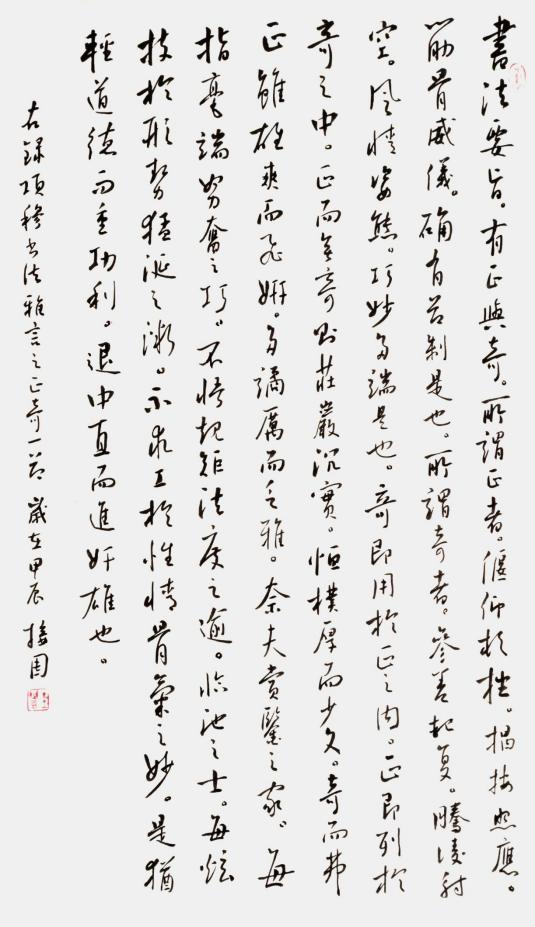 書法要旨。有正與奇。所謂正者。偃仰頓挫。揭按照應。
筋骨威儀。确有節制是也。所謂奇者。參差起复。騰凌射
空。風情姿態。巧妙多端是也。奇即用於正之內。正即列於
奇之中。正而無奇則莊嚴沉實。恒樸厚而少文。奇而弗
正雖雄爽而飛妍。多譎厲而乏雅。奈夫賞鑒之家。每
指毫端努奮之巧。不悟規矩法度之逾。臨池之士。每炫
技於形勢猛誕之漸。不求工於性情骨氣之妙。是猶
輕道德而重功利。退中直而進奸雄也。
右錄項穆書法雅言之正奇一節 歲在甲辰